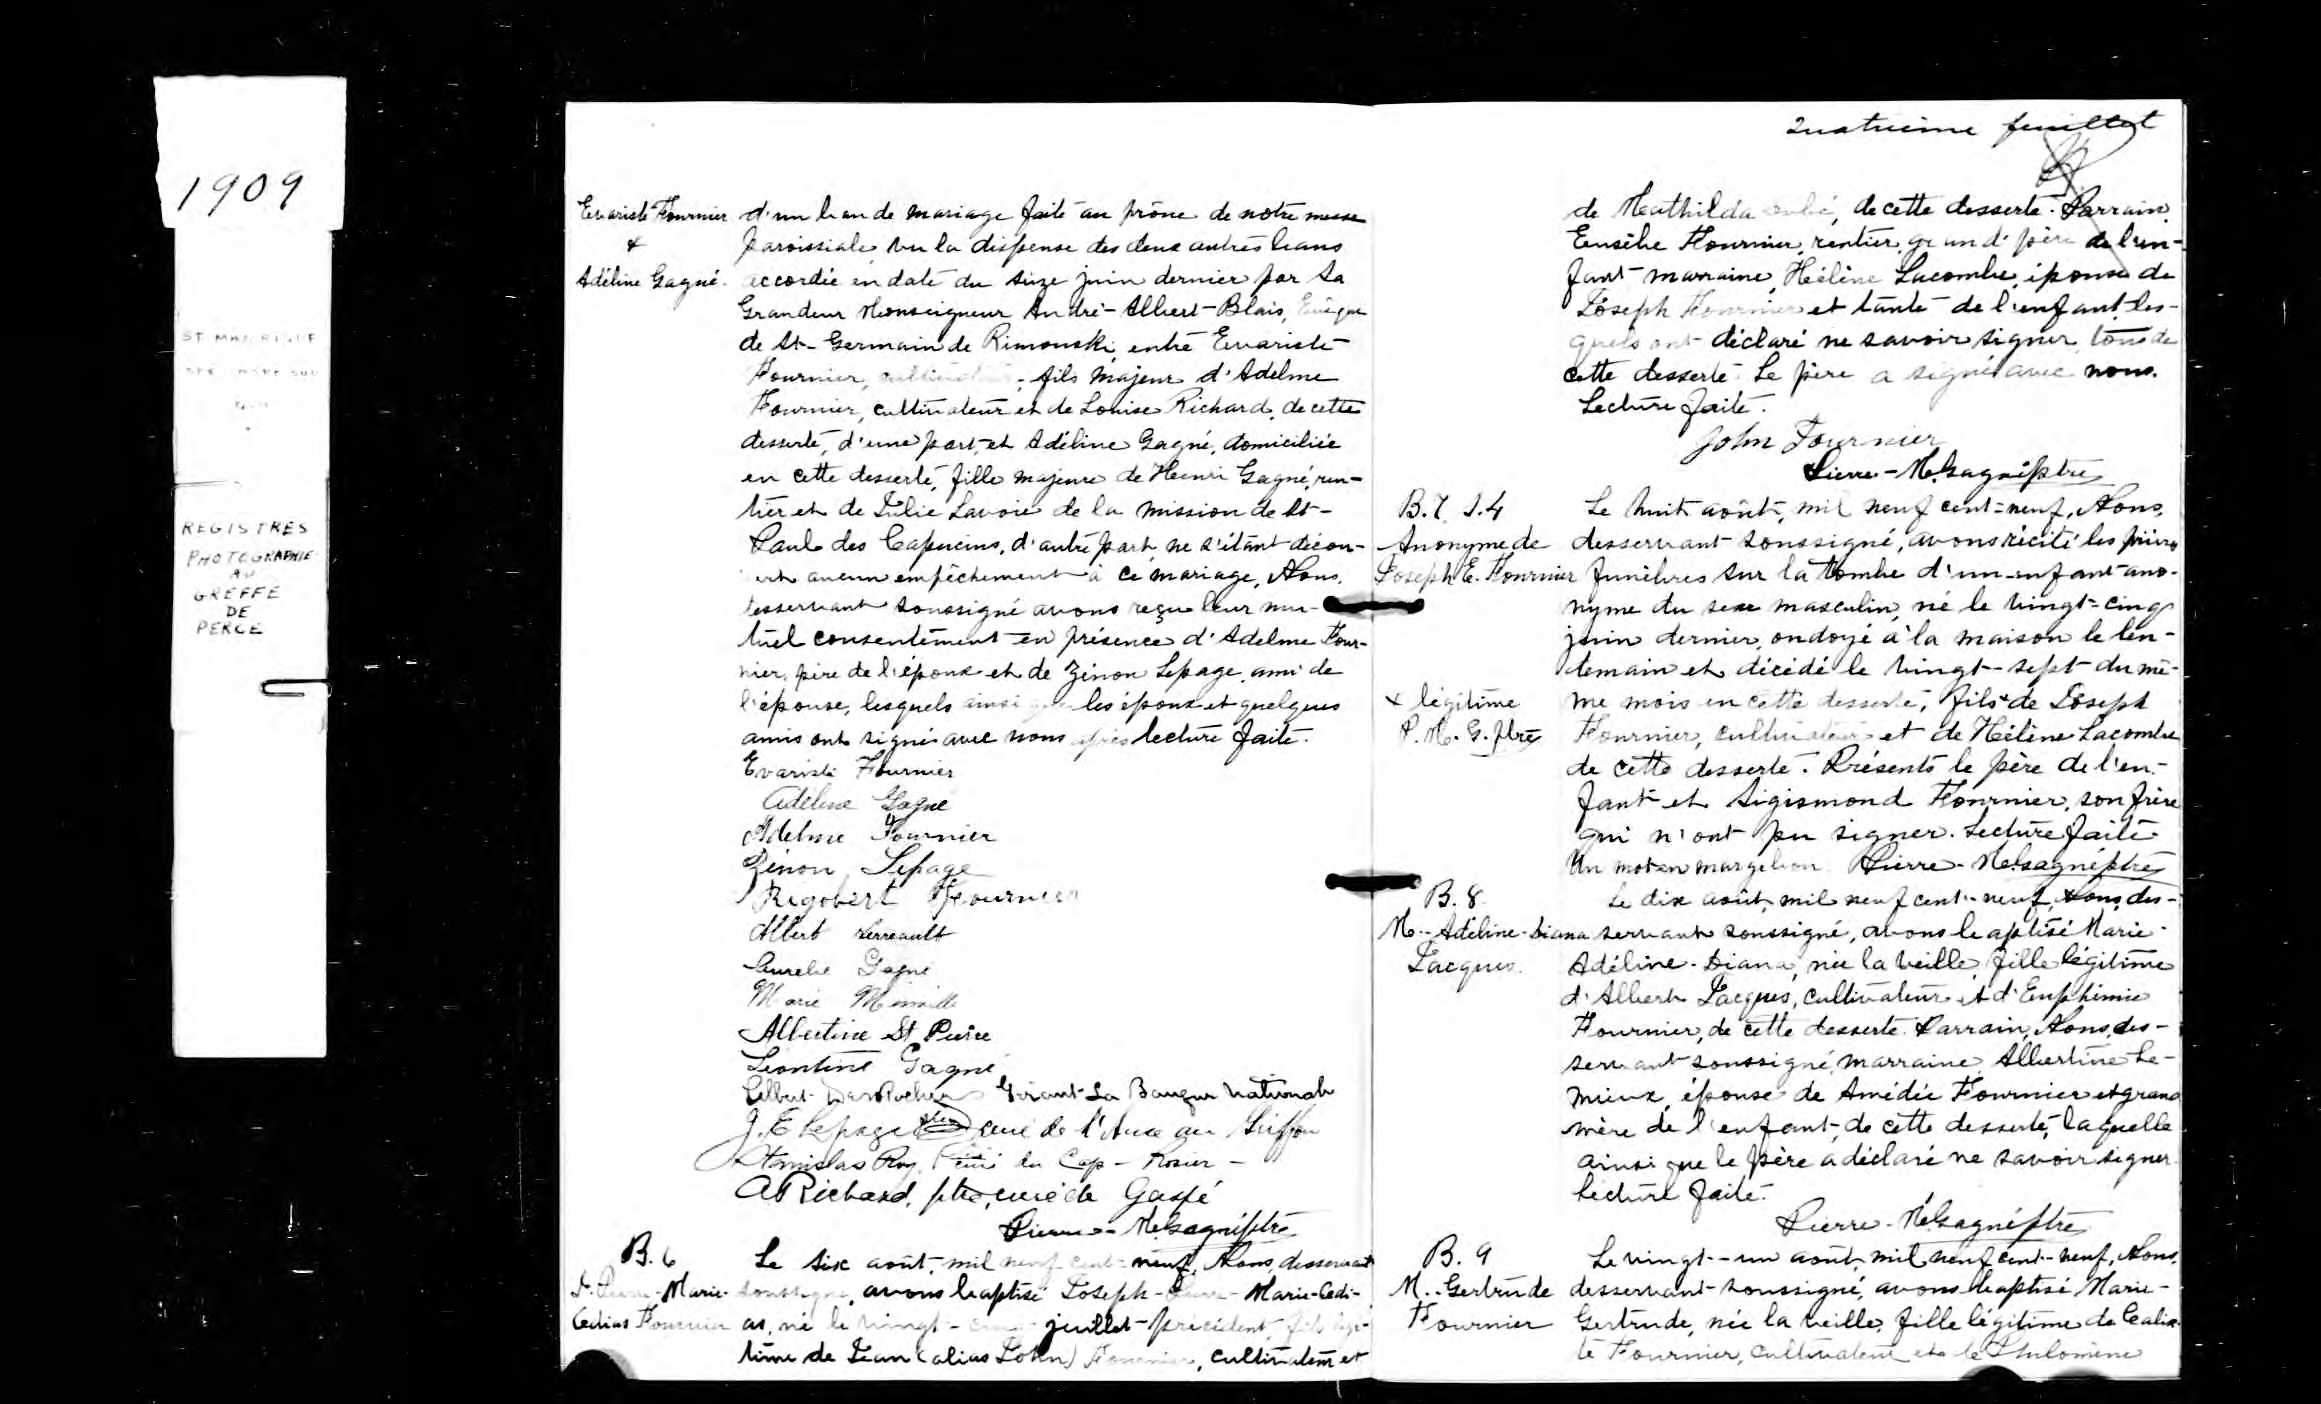 1909
REGISTRES
PHOTOGRAPHIE
AU
GREFFE
DE
PERCE
Evariste Fournier
&
Adéline Gagné.
d'un ban de mariage faite au prône de notre messe
paroissiale, vu la dispense des deux autres bans
accordée en date du seize juin dernier par Sa
Grandeur Monseigneur André-Albert-Blais, Evêque
de St-Germain de Rimouski, entre Evariste
Fournier, cultivateur, fils majeur d'Adelme
Fournier, cultivateur et de Louise Richard, de cette
desserte, d'une part, et Adéline Gagné, domiciliée
en cette desserte, fille majeure de Henri Gagné, ren-
tier et de Julie Lavoie de la mission de St-
Paul des Capucins, d'autre part, ne s'étant décou-
vert aucun empêchement à ce mariage, Nous,
desservant soussigné avons reçu leur mu-
tuel consentement en présence d'Adelme Four-
nier, père de l'époux et de Zénon Lepage, ami de
l'épouse, lesquels ainsi que les époux et quelques
amis ont signé avec nous après lecture faite.
Evariste Fournier
Adéline Gagné
Adelme Fournier
Zénon Lepage
Rigobert Fournier
Albert Perreault
Aurelie Gagné
Marie
Albertine St Pierre
Léontine Gagné
DesRochers Gérant La Banque Nationale
J. E Lepage ptre curé de l'Anse au Griffon
Stanislas Roy, curé du Cap-Rosier-
A Richard, ptre, curé de Gaspé
Pierre-M. Gagné ptre
B. 6
J. Pierre-Marie-
Cedias Fournier
Le six août, mil neuf cent-neuf, Nous, desservant
soussigné, avons baptisé Joseph-Pierre-Marie-Cedi-
as, né le vingt-cinq juillet précédent, fils légi-
time de Jean (alias John) Fournier, cultivateur et
Quatrième feuillet
de Mathilda de cette desserte. Parrain,
Eusèbe Fournier, rentier, grand'père de l'en-
fant marraine, Hélène Lacombe, épouse de
Joseph Fournier et tante de l'enfant, les-
quels ont déclaré ne savoir signer, tous de
cette desserte. Le père a signé avec nous.
Lecture faite.
John Fournier
Pierre-M. Gagné ptre
B. 7 S. 4
Anonyme de
Joseph E. Fournier
Le huit août, mil neuf cent-neuf, Nous,
desservant soussigné, avons récité les prières
funèbres sur la tombe d'un enfant ano-
nyme du sexe masculin, né le vingt-cinq
juin dernier, ondoyé à la maison le len-
demain et décédé le vingt-sept du mê-
+ légitime
P. M. G. ptre
me mois en cette desserte, fils + de Joseph
Fournier, cultivateur et de Hélène Lacombe
de cette desserte. Présents le père de l'en-
fant et Sigismond Fournier, son frère
qui n'ont pu signer. Lecture faite
Un mot en marge bon. Pierre-M. Gagné ptre
B. 8
M.-Adéline-Diana
Jacques.
Le dix août, mil neuf cent-neuf, Nous, des-
servant soussigné, avons baptisé Marie-
Adéline-Diana, née la veille, fille légitime
d'Albert Jacques, cultivateur et d'Euphémie
Fournier, de cette desserte. Parrain, Nous, des-
servant soussigné, marraine, Albertine Le-
mieux, épouse de Amédée Fournier et grand
mère de l'enfant, de cette desserte, laquelle
ainsi que le père a déclaré ne savoir signer.
Lecture faite.
Pierre-M. Gagné ptre
B. 9
M.-Gertrude
Fournier
Le vingt-un août, mil neuf cent-neuf, Nous,
desservant soussigné, avons baptisé Marie-
Gertrude, née la veille, fille légitime de Calix-
te Fournier, cultivateur et de Philomène